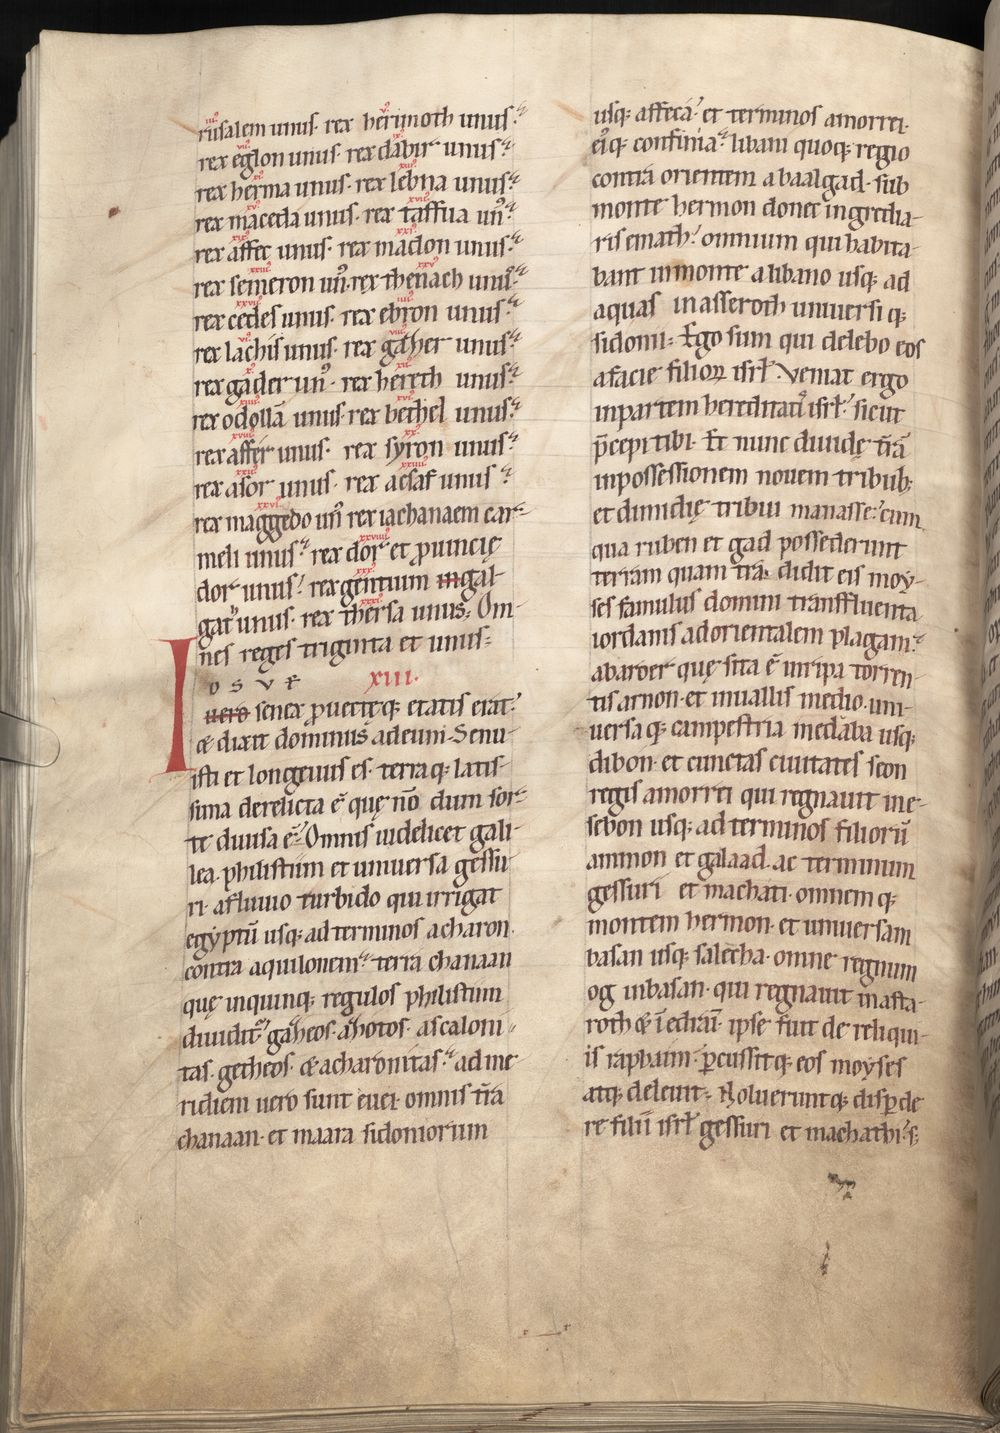 rusalem unus· rex herimoth unus·
rex eglon unus· rex dabir unus·
rex herma unus· rex lebna unus·
rex maceda unus· rex taffua un᷒·
rex affec unus· rex madon unus·
rex semeron un᷒· rex thenach unus·
rex cedes unus· rex ebron unus·
rex lachis unus· rex gaher unus·
rex gader un᷒· rex hereth unus·
rex odollā unus· rex bethel unus·
rex affer unus· rex syron unus·
rex asor unus· rex acsaf unus·
rex maggedo un᷒ rex iachanaem car-
meli unus· rex dor et ꝓuincię
dor unus· rex gentium in gal-
gal unus· rex thersa unus· Om-
nes reges triginta et unus·
IOSVE XIII·
uero senex ꝓuectęq; etatis erat·
& dixit dominus ad eum· Senu-
isti et longeuus es· terraq; latis-
sima derelicta ē· quę nō dum sor-
te diuisa ē· Omnis uidelicet gali-
lea· philistiim et uniuersa gessu-
ri· a fluuio turbido qui irrigat
egyptū usq; ad terminos acharon·
contra aquilonem· terra chanaan
quę in quinq; regulos philistiim
diuidit᷑· gazeos· azotos· ascaloni-
tas· getheos· & acharonitas· ad me-
ridiem uero sunt euei· omnis t̄ra
chanaan· et maara sidoniorum
usq; affecā· et terminos amorrei·
ei᷒q; confinia· libani quoq; regio
contra orientem a baalgad· sub
monte hermon donec ingredia-
ris emath· omnium qui habita-
bant in monte a libano usq; ad
aquas in asseroth uniuersiq;
sidonii· Ego sum qui delebo eos
a facie filioꝝ isrł· Veniat ergo
in partem hereditatis isrł· sicut
p̄cepi tibi· Et nunc diuidę t̄rā
in possessionem nouem tribub;
et dimidię tribui manasse· cum
qua ruben et gad possederunt
terram quam tradidit eis moy-
ses famulus domini transfluenta
iordanis ad orientalem plagam·
ab aroer quę sita ē in ripa torren-
tis arnon· et in uallis medio· uni-
uersaq; campestria medaba usq;
dibon· et cunctas ciuitates seon
regis amorrei qui regnauit in e-
sebon usq; ad terminos filiorū
ammon et galaad· ac terminum
gessuri et machati· omnemq;
montem hermon· et uniuersam
basan usq; salecha· omne regnum
og in basan· qui regnauit in asta-
roth & ī edrai· ipse fuit de reliqui-
is raphaim· ꝑcussitq; eos moyses
atq; deleuit· Nolueruntq; disꝑde-
re filii isrł gessuri et machathi·